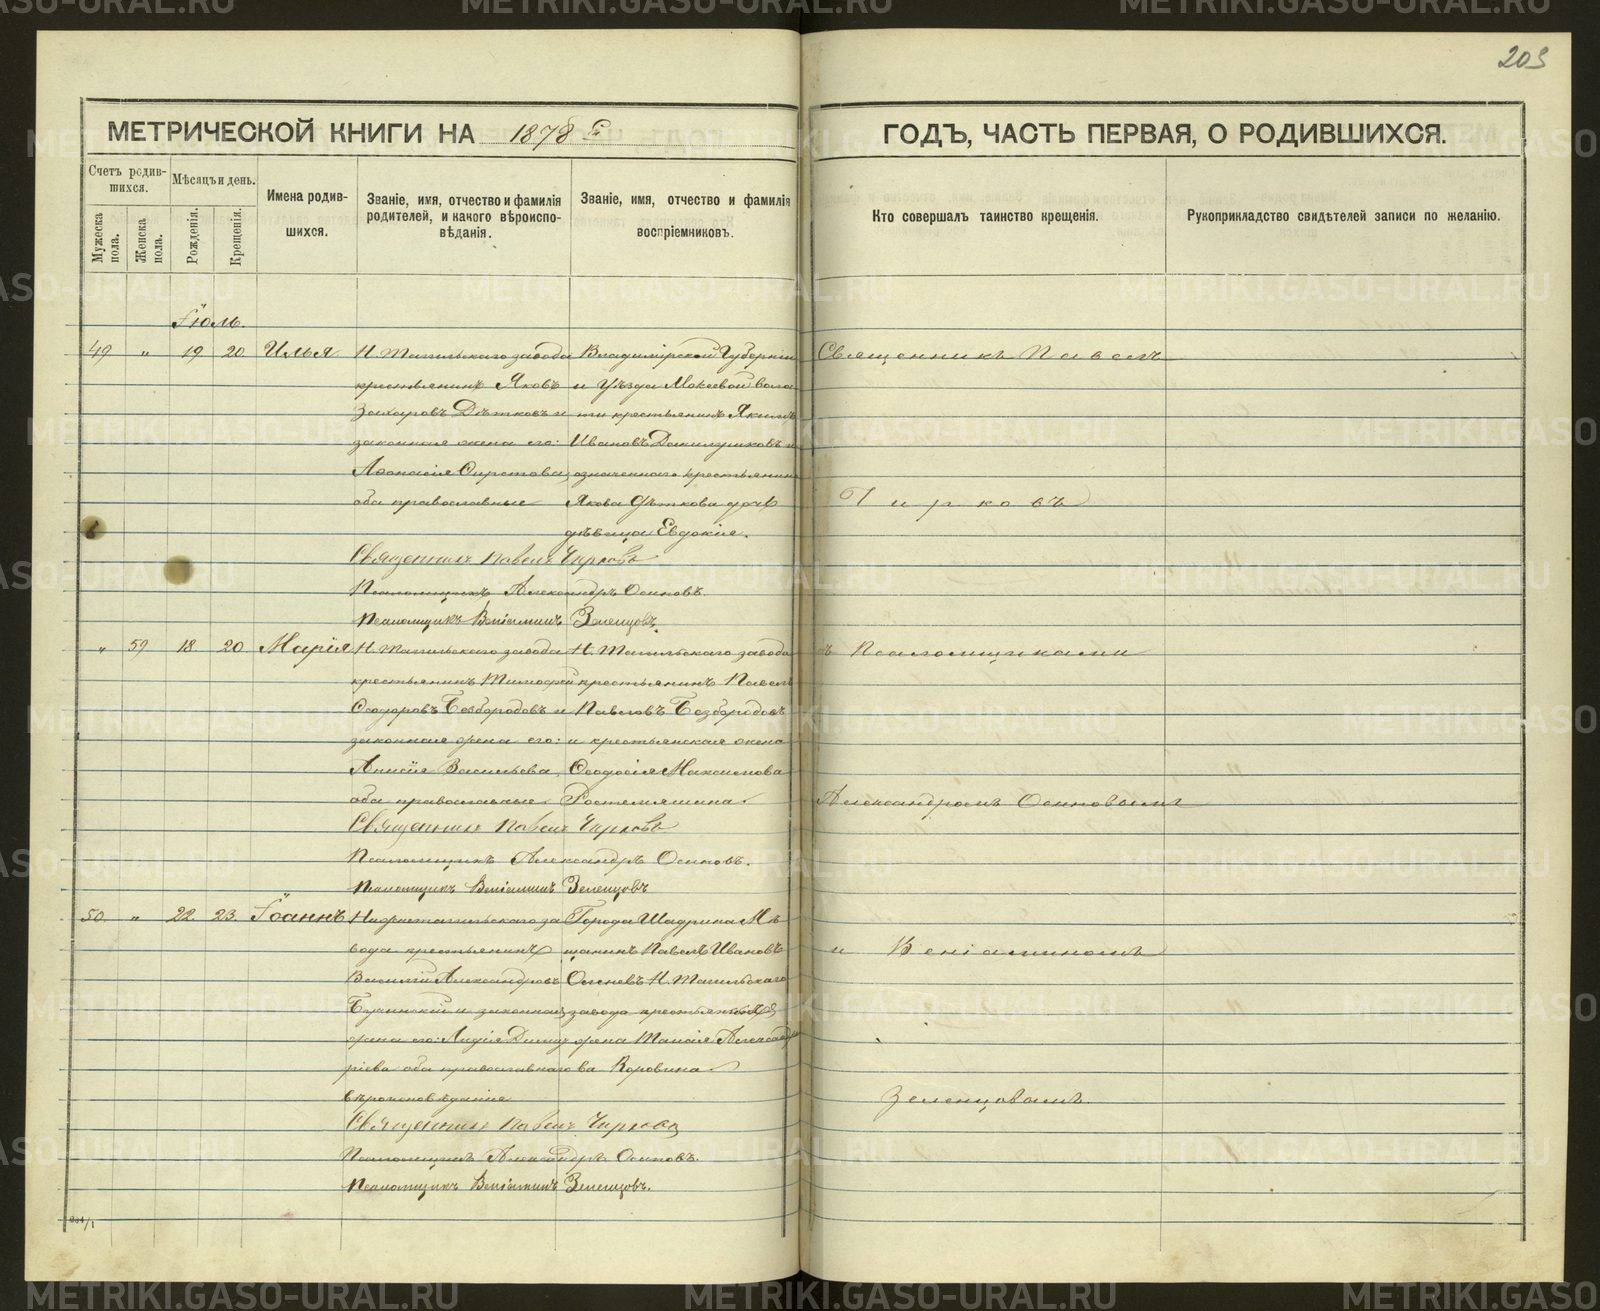 203
МЕТРИЧЕСКОЙ КНИГИ НА 1878 Г. ГОДЪ, ЧАСТЬ ПЕРВАЯ, О РОДИВШИХСЯ.
Счетъ родив-
шихся.
Мужеска пола.
Женска пола.
Мѣсяцъ и день.
Рожденія.
Крещенія.
Имена родив-
шихся.
Званіе, имя, отчество и фамилія
родителей, и какого вѣроиспо-
вѣданія.
Званіе, имя, отчество и фамилія
воспріемниковъ.
Кто совершалъ таинство крещенія.
Рукоприкладство свидѣтелей записи по желанію.
Іюль.
49 " 19 20 Илья
Н. Тагильскаго завода
крестьянинъ Яковъ
Захаровъ Дѣтковъ и
законная жена его:
Афонасія
оба православные
Владимірской Губерніи
и Уѣзда воло
сти крестьянинъ Якимъ
Ивановъ и
означеннаго крестьянина
Якова Дѣткова дочь
дѣвица Евдокія.
Священникъ Павелъ Чирковъ
Псаломщикъ Александръ Осиповъ.
Псаломщикъ Веніаминъ Зеленцовъ.
" 59 18 20 Марія
Н. Тагильскаго завода
крестьянинъ Тимофей
Феодоровъ Безбородовъ и
законная жена его:
Анисія Васильева,
оба православные
Н. Тагильскаго завода
крестьянинъ Павелъ
Павловъ Безбородовъ
и крестьянская жена
Феодосія Максимова
Священникъ Павелъ Чирковъ
Псаломщикъ Александръ Осиповъ.
Псаломщикъ Веніаминъ Зеленцовъ
50. " 22. 23. Іоаннъ
Нижнетагильскаго за
вода крестьянинъ
Василій Александровъ
и законная
жена его: Лидія Димит
ріева оба православнаго
вѣроисповѣданія
Города Шадрина Мѣ
щанинъ Павелъ Ивановъ
Н. Тагильскаго
завода крестьянина
жена Таисія Александро
ва Коровина
Священникъ Павелъ Чирковъ
Псаломщикъ Александръ Осиповъ.
Псаломщикъ Веніаминъ Зеленцовъ.
Священникъ Павелъ
Чирковъ
съ Псаломщиками
Александромъ Осиповымъ
и Веніаминомъ
Зеленцовымъ.
METRIKI.GASO-URAL.RU